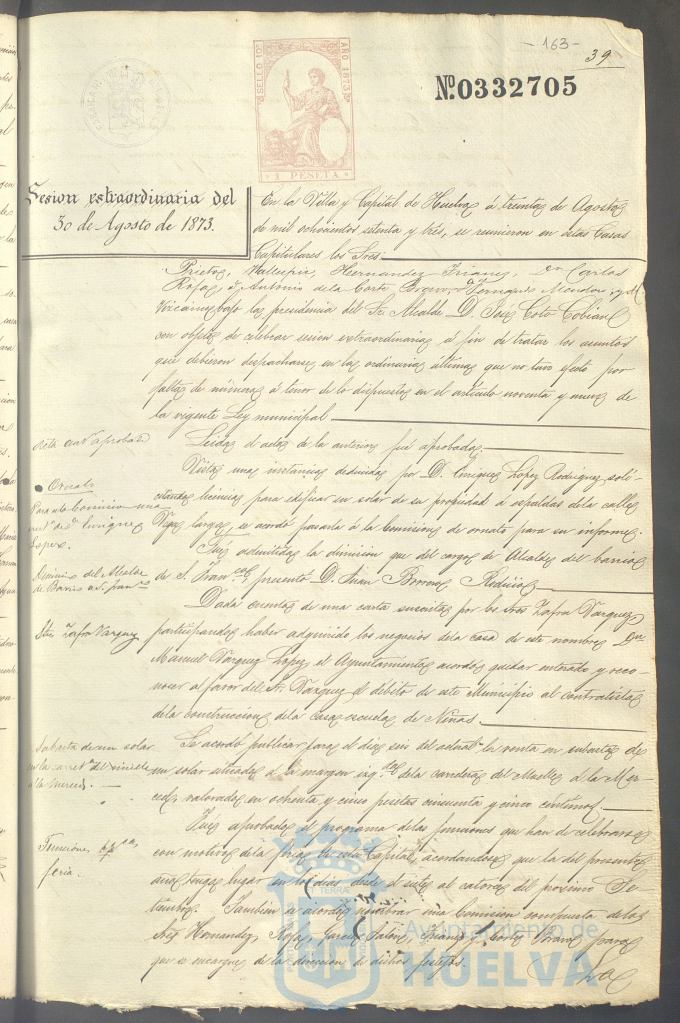 -163-
39
SELLO 10º AÑO 1873
1 PESETA
Nº 0332705
Sesion extraordinaria del
30 de Agosto de 1873.
En la Villa y Capital de Huelva á treinta de Agosto
de mil ochocientos setenta y tres, se reunieron en estas Casas
Capitulares los Sres.
Prieto, Vallespin, Hernandez, Trianes, Dn Carlos
Rojas, D. Antonio de la Corte Bravo, Dn Fernando
Vizcaino bajo la presidencia del Sr Alcalde D. José Coto Cobian
con objeto de celebrar sesion extraordinaria á fin de tratar los asuntos
que debieron despacharse en la ordinaria última que no tuvo efecto por
falta de número á tenor de lo dispuesto en el artículo noventa y nueve de
la vigente Ley municipal
Acta antr aprobada
Leida el acta de la anterior fué aprobada
Ornato
Pasa á la Comision una
de Dn Enrique
Lopez.
Vista una instancia deducida por D. Enrique Lopez Rodriguez, soli-
citando licencia para edificar un solar de su propiedad á espaldas de la calle
Vega larga, se acordó pasarla á la Comision de ornato para su informe.
Dimision del Alcalde
de Barrio de S. Franco
Fué admitida la dimision que del cargo de Alcalde del barrio
de S. Franco presentó D. Juan Borrero
Sres Zafra Vazquez
Dada cuenta de una carta suscrita por los Sres Zafra Vazquez
participando haber adquirido los negocios de la casa de este nombre Dn
Manuel Vazquez Lopez, el Ayuntamiento acordó quedar enterado y reco-
nocer al favor del Sr Vazquez el débito de este Municipio al contratista
de la construccion de la casa escuela de Niñas.
Subasta de un solar
en la carreta del muelle
á la Merced.
Se acordó publicar para el dia seis del actual la venta en subasta de
un solar situado á la margen izqda de la carretera del Muelle á la Mer-
ced, valorado en ochenta y cinco pesetas cincuenta y cinco céntimos.
Funciones
feria.
Fué aprobado el programa de las funciones que han de celebrarse
con motivo de la feria de esta Capital, acordandose que la del presente
año tenga lugar en los dias desde el siete al catorce del próximo Se-
tiembre. Tambien se acordó nombrar una Comision compuesta de los
Sres Hernandez, Rojas, Garcia, Trianes y Corte Bravo para
que se encargue de la direccion de dichos festejos.
Ayuntamiento de
HUELVA